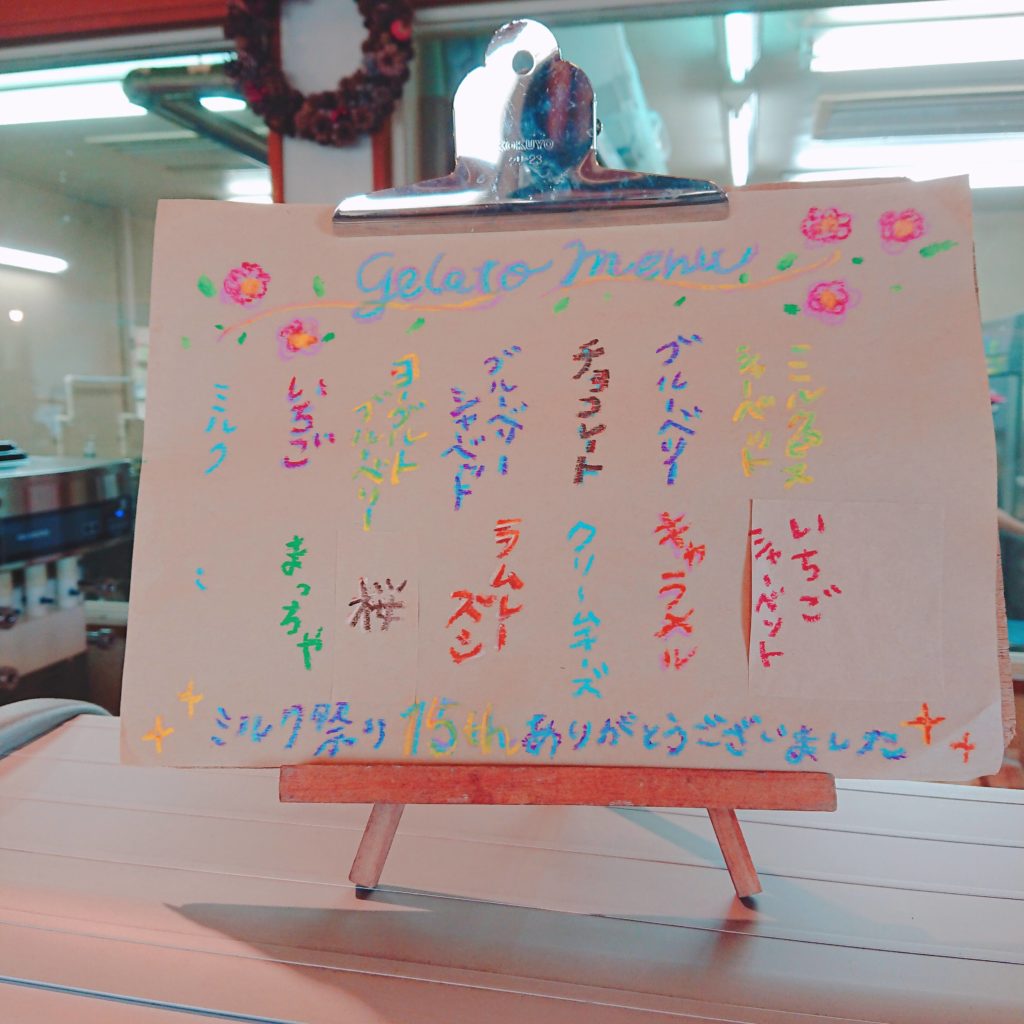 KOKUYO
Gelato Menu
シャーベット
ブルーベリー
チョコレート
ブルーベリー
シャベット
ヨーグルト
ブルーベリー
いちご
ミルク
いちご
シャーベット
キャラメル
クリームチーズ
ラムレー
ズン
桜
まっちゃ
ミ
ミルク祭り 15th ありがとうございました